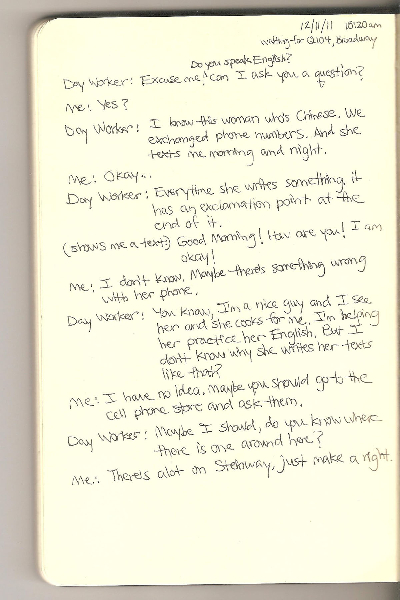 12/11/11 10:20am
waiting for Q104, Broadway
Do you speak English?
Day Worker: Excuse me! Can I ask you a question?
Me: Yes?
Day Worker: I know this woman who's Chinese. We
exchanged phone numbers. And she
texts me morning and night.
Me: Okay...
Day Worker: Everytime she writes something, it
has an exclamation point at the
end of it.
(shows me a text) Good Morning! How are you! I am
okay!
Me: I don't know. Maybe there's something wrong
with her phone.
Day Worker: You know, I'm a nice guy and I see
her and she cooks for me. I'm helping
her practice her English. But I
don't know why she writes her texts
like that?
Me: I have no idea. Maybe you should go to the
cell phone store and ask them.
Day Worker: Maybe I should, do you know where
there is one around here?
Me: There's alot on Steinway, just make a right.